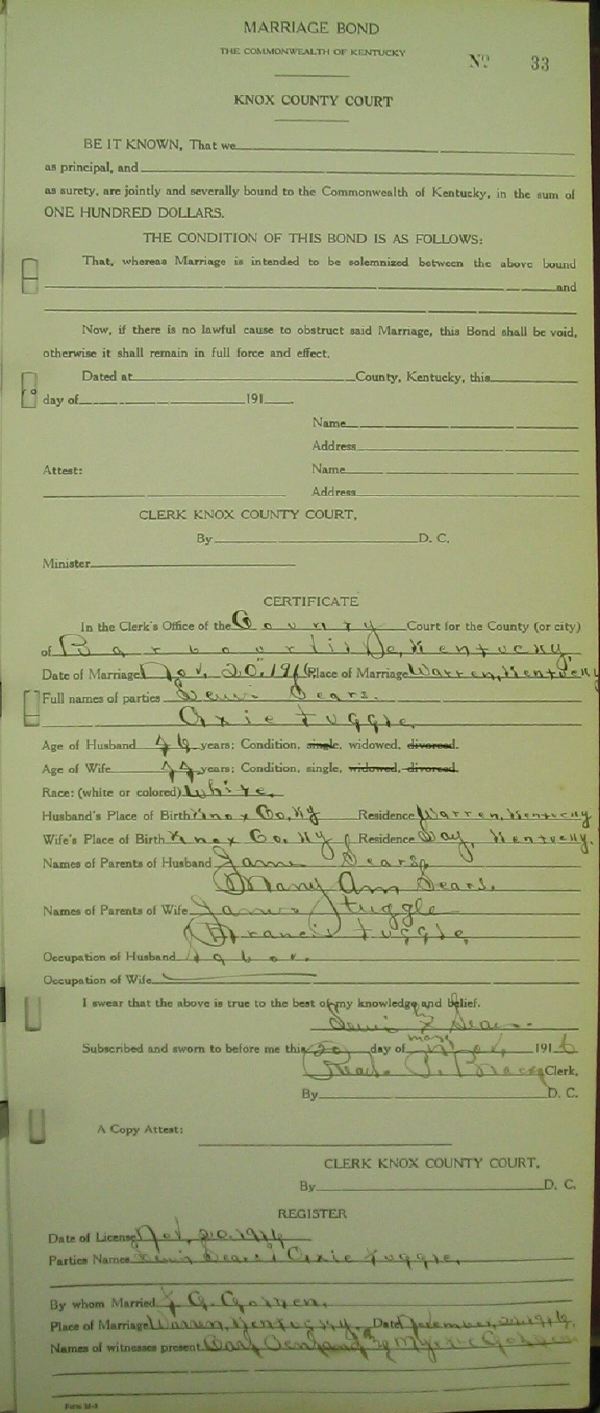 MARRIAGE BOND
THE COMMONWEALTH OF KENTUCKY
No 33
KNOX COUNTY COURT
BE IT KNOWN, That we
as principal, and
as surety, are jointly and severally bound to the Commonwealth of Kentucky, in the sum of
ONE HUNDRED DOLLARS.
THE CONDITION OF THIS BOND IS AS FOLLOWS:
That, whereas Marriage is intended to be solemnized between the above bound
and
Now, if there is no lawful cause to obstruct said Marriage, this Bond shall be void,
otherwise it shall remain in full force and effect.
Dated at County, Kentucky, this
day of 191
Name
Address
Attest: Name
Address
CLERK KNOX COUNTY COURT.
By D. C.
Minister
CERTIFICATE
In the Clerk's Office of the County Court for the County (or city)
of Barbourville, Kentucky,
Date of Marriage Nov, 20, 1916 Place of Marriage Warren, Kentucky
Full names of parties Lewis Sears.
Oxie Tuggle,
Age of Husband years; Condition, single, widowed, divorced.
Age of Wife 44 years; Condition, single, widowed, divorced.
Race: (white or colored) White,
Husband's Place of Birth Knox Co, Ky Residence Warren, Kentucky
Wife's Place of Birth Knox Co, Ky Residence Day, Kentucky.
Names of Parents of Husband Sears,
Mary Ann Sears.
Names of Parents of Wife James Tuggle
Francis Tuggle
Occupation of Husband labor.
Occupation of Wife
I swear that the above is true to the best of my knowledge and belief.
Lewis Sears.
Subscribed and sworn to before me this 20 day of Nov, 1916
Read P. Black Clerk,
By D. C.
A Copy Attest:
CLERK KNOX COUNTY COURT.
By D. C.
REGISTER
Date of License Nov, 20, 1916
Parties Names Lewis Sears & Oxie Tuggle,
By whom Married J. G.
Place of Marriage Warren, Kentucky. Date 1916,
Names of witnesses present
Form M-3